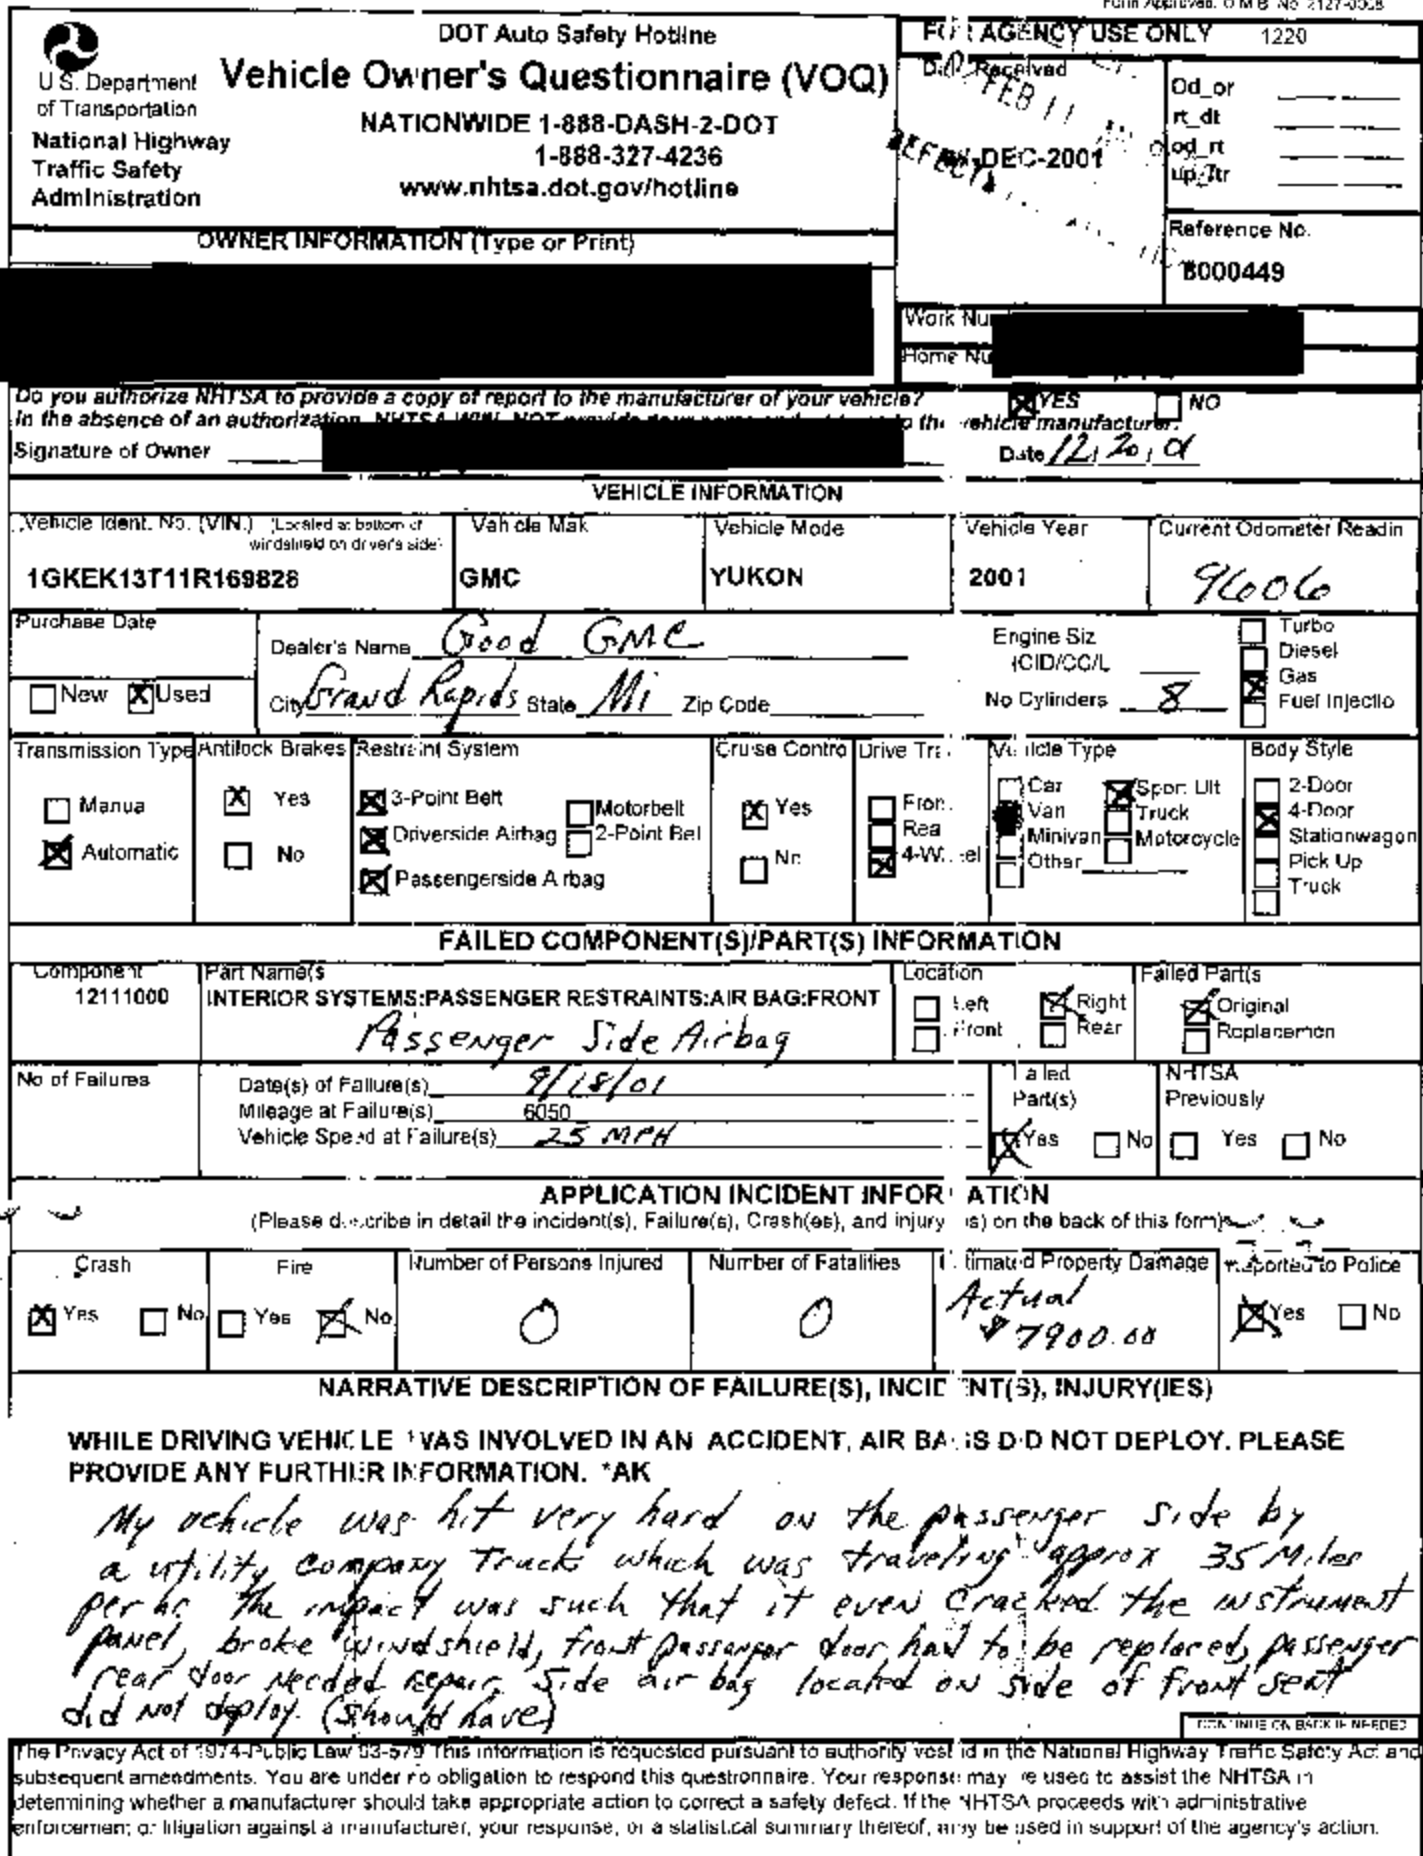 Form Approved. O.M.B. No. 2127-0008
DOT Auto Safety Hotline
Vehicle Owner's Questionnaire (VOQ)
NATIONWIDE 1-888-DASH-2-DOT
1-888-327-4236
www.nhtsa.dot.gov/hotline
U.S. Department
of Transportation
National Highway
Traffic Safety
Administration
AGENCY USE ONLY 1220
Received
FEB 11
DEC-2001
Od_or
rt_dt
od_rt
up_ltr
Reference No.
8000449
OWNER INFORMATION (Type or Print)
Work Nu
Home Nu
Do you authorize NHTSA to provide a copy of report to the manufacturer of your vehicle?
YES NO
In the absence of an authorization, NHTSA WILL NOT provide the vehicle manufacturer.
Signature of Owner Date 12, 20, 01
VEHICLE INFORMATION
Vehicle Ident. No. (VIN.) (Located at bottom of
windshield on driver's side)
1GKEK13T11R169828
Vehicle Mak
GMC
Vehicle Mode
YUKON
Vehicle Year
2001
Current Odometer Readin
9606
Purchase Date
New X Used
Dealer's Name Good GMC
City Grand Rapids State Mi Zip Code
Engine Siz
(CID/CC/L
No Cylinders 8
Turbo
Diesel
Gas
Fuel Injectio
Transmission Type
Manua
Automatic
Antilock Brakes
X Yes
No
Restraint System
3-Point Belt
Driverside Airbag
Passengerside Airbag
Motorbelt
2-Point Bel
Cruise Contro
X Yes
No
Drive Tra
Fron
Rea
4-W el
Vehicle Type
Car
Van
Minivan
Other
Sport Ult
Truck
Motorcycle
Body Style
2-Door
4-Door
Stationwagon
Pick Up
Truck
FAILED COMPONENT(S)/PART(S) INFORMATION
Component
12111000
Part Name(s
INTERIOR SYSTEMS:PASSENGER RESTRAINTS:AIR BAG:FRONT
Passenger Side Airbag
Location
Left
Front
Right
Rear
Failed Part(s
Original
Replacemen
No of Failures
Date(s) of Failure(s) 9/18/01
Mileage at Failure(s) 6050
Vehicle Speed at Failure(s) 25 MPH
Failed
Part(s)
Yes No
NHTSA
Previously
Yes No
APPLICATION INCIDENT INFORMATION
(Please describe in detail the incident(s), Failure(s), Crash(es), and injury(is) on the back of this form)
Crash
X Yes No
Fire
Yes No
Number of Persons Injured
0
Number of Fatalities
0
Estimated Property Damage
Actual
$ 7900.00
Reported to Police
Yes No
NARRATIVE DESCRIPTION OF FAILURE(S), INCIDENT(S), INJURY(IES)
WHILE DRIVING VEHICLE WAS INVOLVED IN AN ACCIDENT, AIR BAGS DID NOT DEPLOY. PLEASE
PROVIDE ANY FURTHER INFORMATION. *AK
My vehicle was hit very hard on the passenger side by
a utility company Truck which was traveling approx 35 Miles
per hr The impact was such that it even cracked the instrument
panel, broke windshield, front passenger door had to be replaced, passenger
rear door needed repair. Side air bag located on side of front seat
did not deploy. (should have)
CONTINUE ON BACK IF NEEDED
The Privacy Act of 1974-Public Law 93-579 This information is requested pursuant to authority vested in the National Highway Traffic Safety Act and
subsequent amendments. You are under no obligation to respond this questionnaire. Your response may be used to assist the NHTSA in
determining whether a manufacturer should take appropriate action to correct a safety defect. If the NHTSA proceeds with administrative
enforcement or litigation against a manufacturer, your response, or a statistical summary thereof, may be used in support of the agency's action.